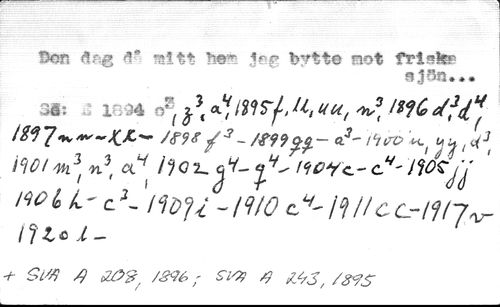 Den dag då mitt hem jag bytte mot friska
sjön...
Se: E 1894 o³, z³, a⁴, 1895 f, ll, uu, n³, 1896 d, d³, d⁴,
1897 nn - xx - 1898 f³ - 1899 qq - a³ - 1900 n, yy, d³,
1901 m³, n³, a⁴, 1902 g⁴ - q⁴ - 1904 c - c⁴ - 1905 jj
1906 h - c³ - 1909 i - 1910 c⁴ - 1911 cc - 1917 v
1920 l -
+ SVA A 208, 1896; SVA A 243, 1895